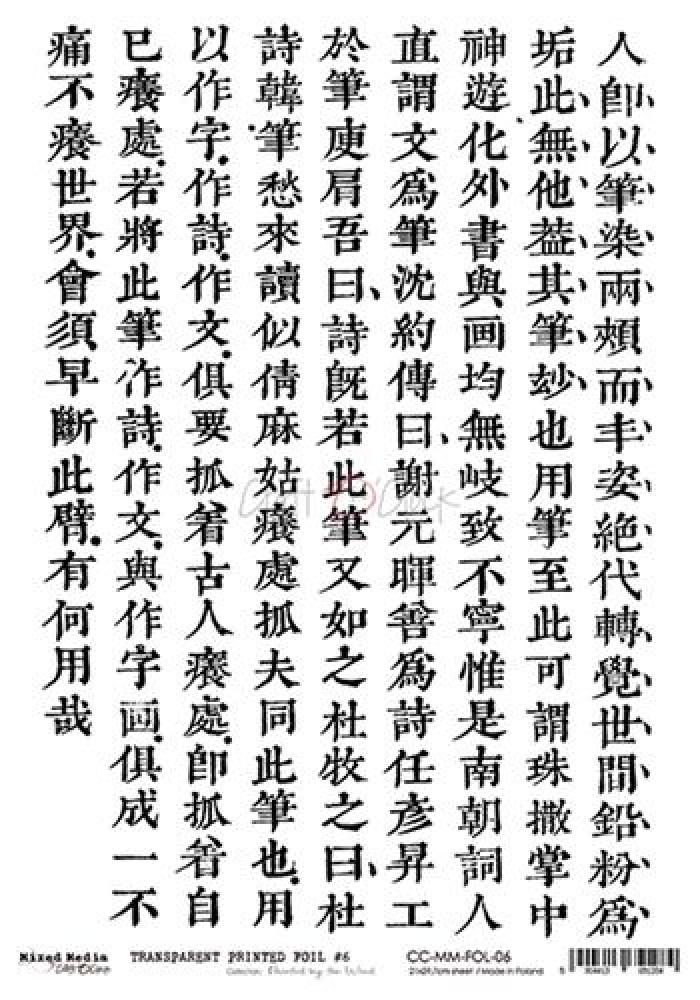 人卽、以、筆、染、兩、頰、而、丰、姿、絕、代、轉、覺、世、間、鉛、粉、爲、
垢此、無、他、葢、其、筆、玅、也用筆至此可謂珠撒掌中
神遊化外書與画均無岐致不寧惟是南朝詞人
直謂文爲筆沈約傳曰、謝元暉善爲詩任彥昇工
於筆庾肩吾曰、詩旣若此筆又如之杜牧之曰、杜
詩韓筆愁來讀似倩麻姑癢處抓夫同此筆也.用
以作字.作詩.作文.俱要抓着古人癢處.卽抓着自
已癢處.若將此筆作詩.作文.與作字画.俱成一不
痛不癢世界.會須早斷此臂.有何用哉
Craft O'Clock
Mixed Media
TRANSPARENT PRINTED FOIL #6
Collection: Painted by the Wind
CC-MM-FOL-06
21x29,7cm sheet / Made in Poland